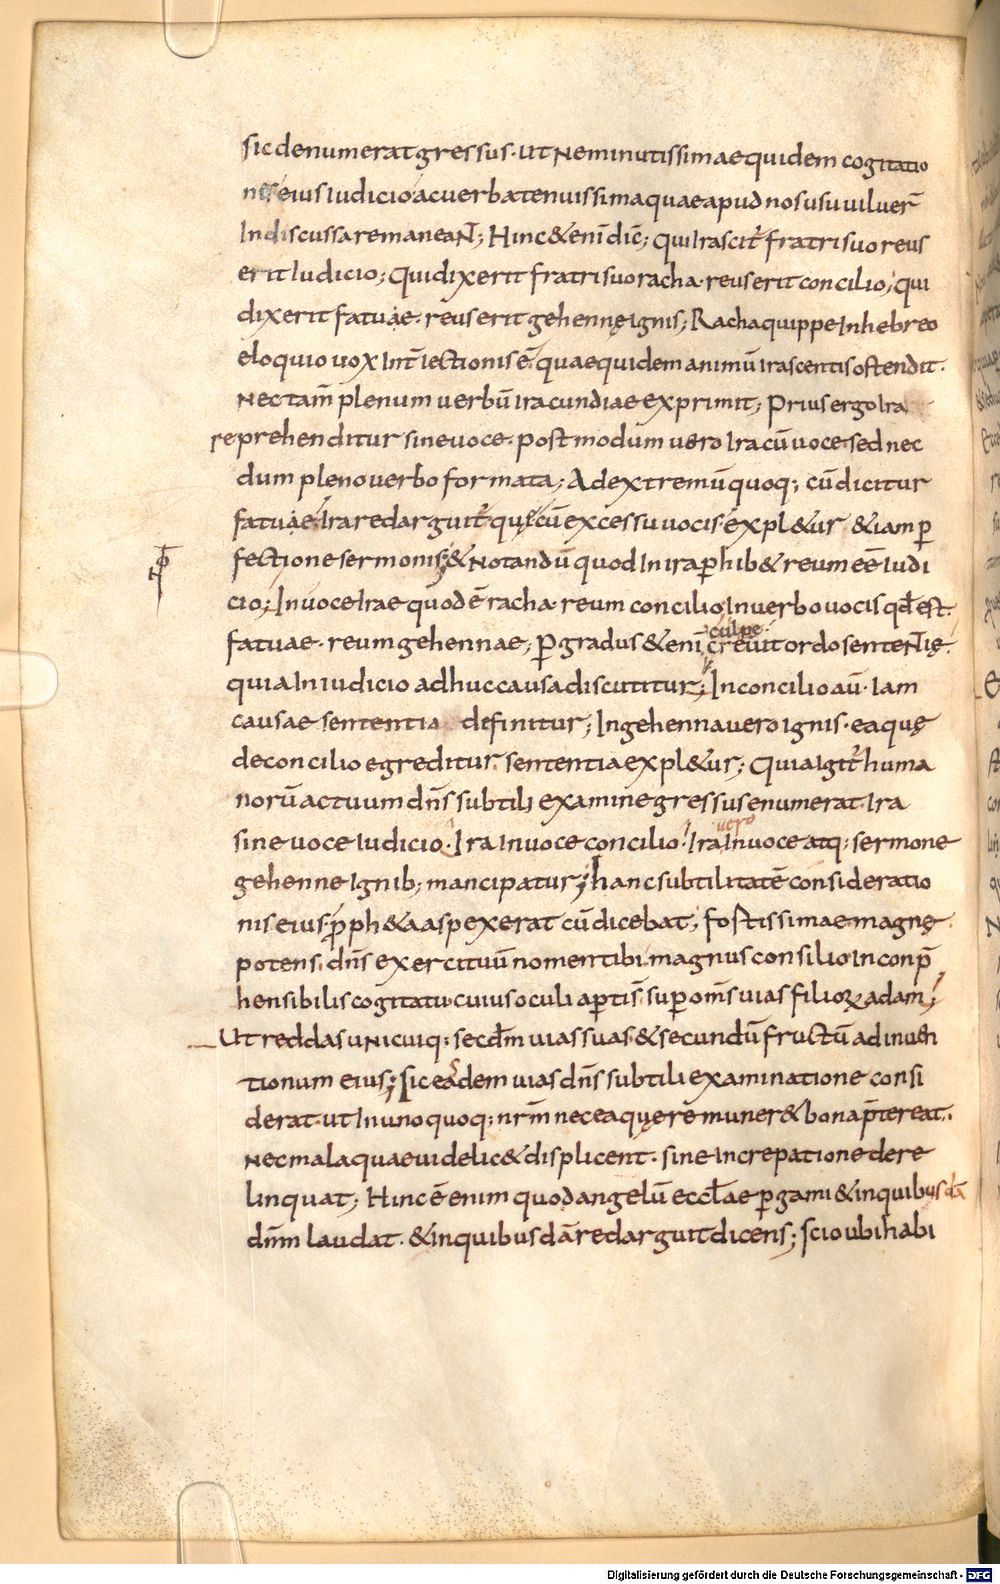 sic denumerat gressus. Ut ne minutissimae quidem cogitatio
nes eius Iudicio ac uerba tenuissima quae apud nos usu uiluer̄
Indiscussa remaneant̄; Hinc & enī dic̄; Qui Irascit᷑ fratri suo reus
erit Iudicio; Qui dixerit fratri suo racha. reus erit concilio; qui
dixerit fatuae. reus erit gehennę Ignis; Racha quippe In hebreo
eloquio uox Int̄iectionis ē. quae quidem animū Irascentis ostendit.
Nec tam̄ plenum uerbū iracundiae exprimit; Prius ergo Ira
reprehenditur sine uoce. postmodum uero Ira cū uoce. sed nec
dum pleno uerbo formata; Ad extremū quoq; cū dicitur
fatuae. Ira redarguit᷑ quę cū excessu uocis expl&ur &iam ꝑ
fectione sermonis; & Notandū quod In ira ꝑhib& reum eē Iudi
cio; In uoce Irae quod ē racha. reum concilio, In uerbo uocis qd̄ est.
culpe.
fatuae. reum gehennae; ꝑ gradus & enī creuit ordo sententię.
quia In iudicio adhuc causa discutitur; In concilio aū. Iam
causae sententia definitur; In gehenna uero ignis. ea quę
de concilio egreditur sententia expl&ur; Quia Igit᷑ huma
norū actuum dn̄s subtili examine gressus enumerat. Ira
uero
sine uoce Iudicio. Ira In uoce concilio. Ira In uoce atq; sermone
gehenne Ignib; mancipatur; hanc subtilitatē consideratio
nis eius. ꝓph&a aspexerat cū dicebat; fortissimae. magnę.
potens. dn̄s exercituū nomen tibi. magnus consilio. Inconp̄
hensibilis cogitatu. cuius oculi aptī s̄ super om̄s uias filioꝝ adam;
Ut reddas unicuiq; secd̄m uias suas. & secundū fructū adinuen
tionum eius; sic easdem uias dn̄s subtili examinatione consi
derat. ut In uno quoq; nr̄m nec ea quę remuner& bona p̄tereat.
Nec mala quae uidelic& displicent. sine Increpatione dere
linquat; Hinc ē enim quod angelū eccl̄ae ꝑgami & in quibusdā
dn̄m laudat. & in quibusdā redarguit dicens; scio ubi habi
Digitalisierung gefördert durch die Deutsche Forschungsgemeinschaft - DFG